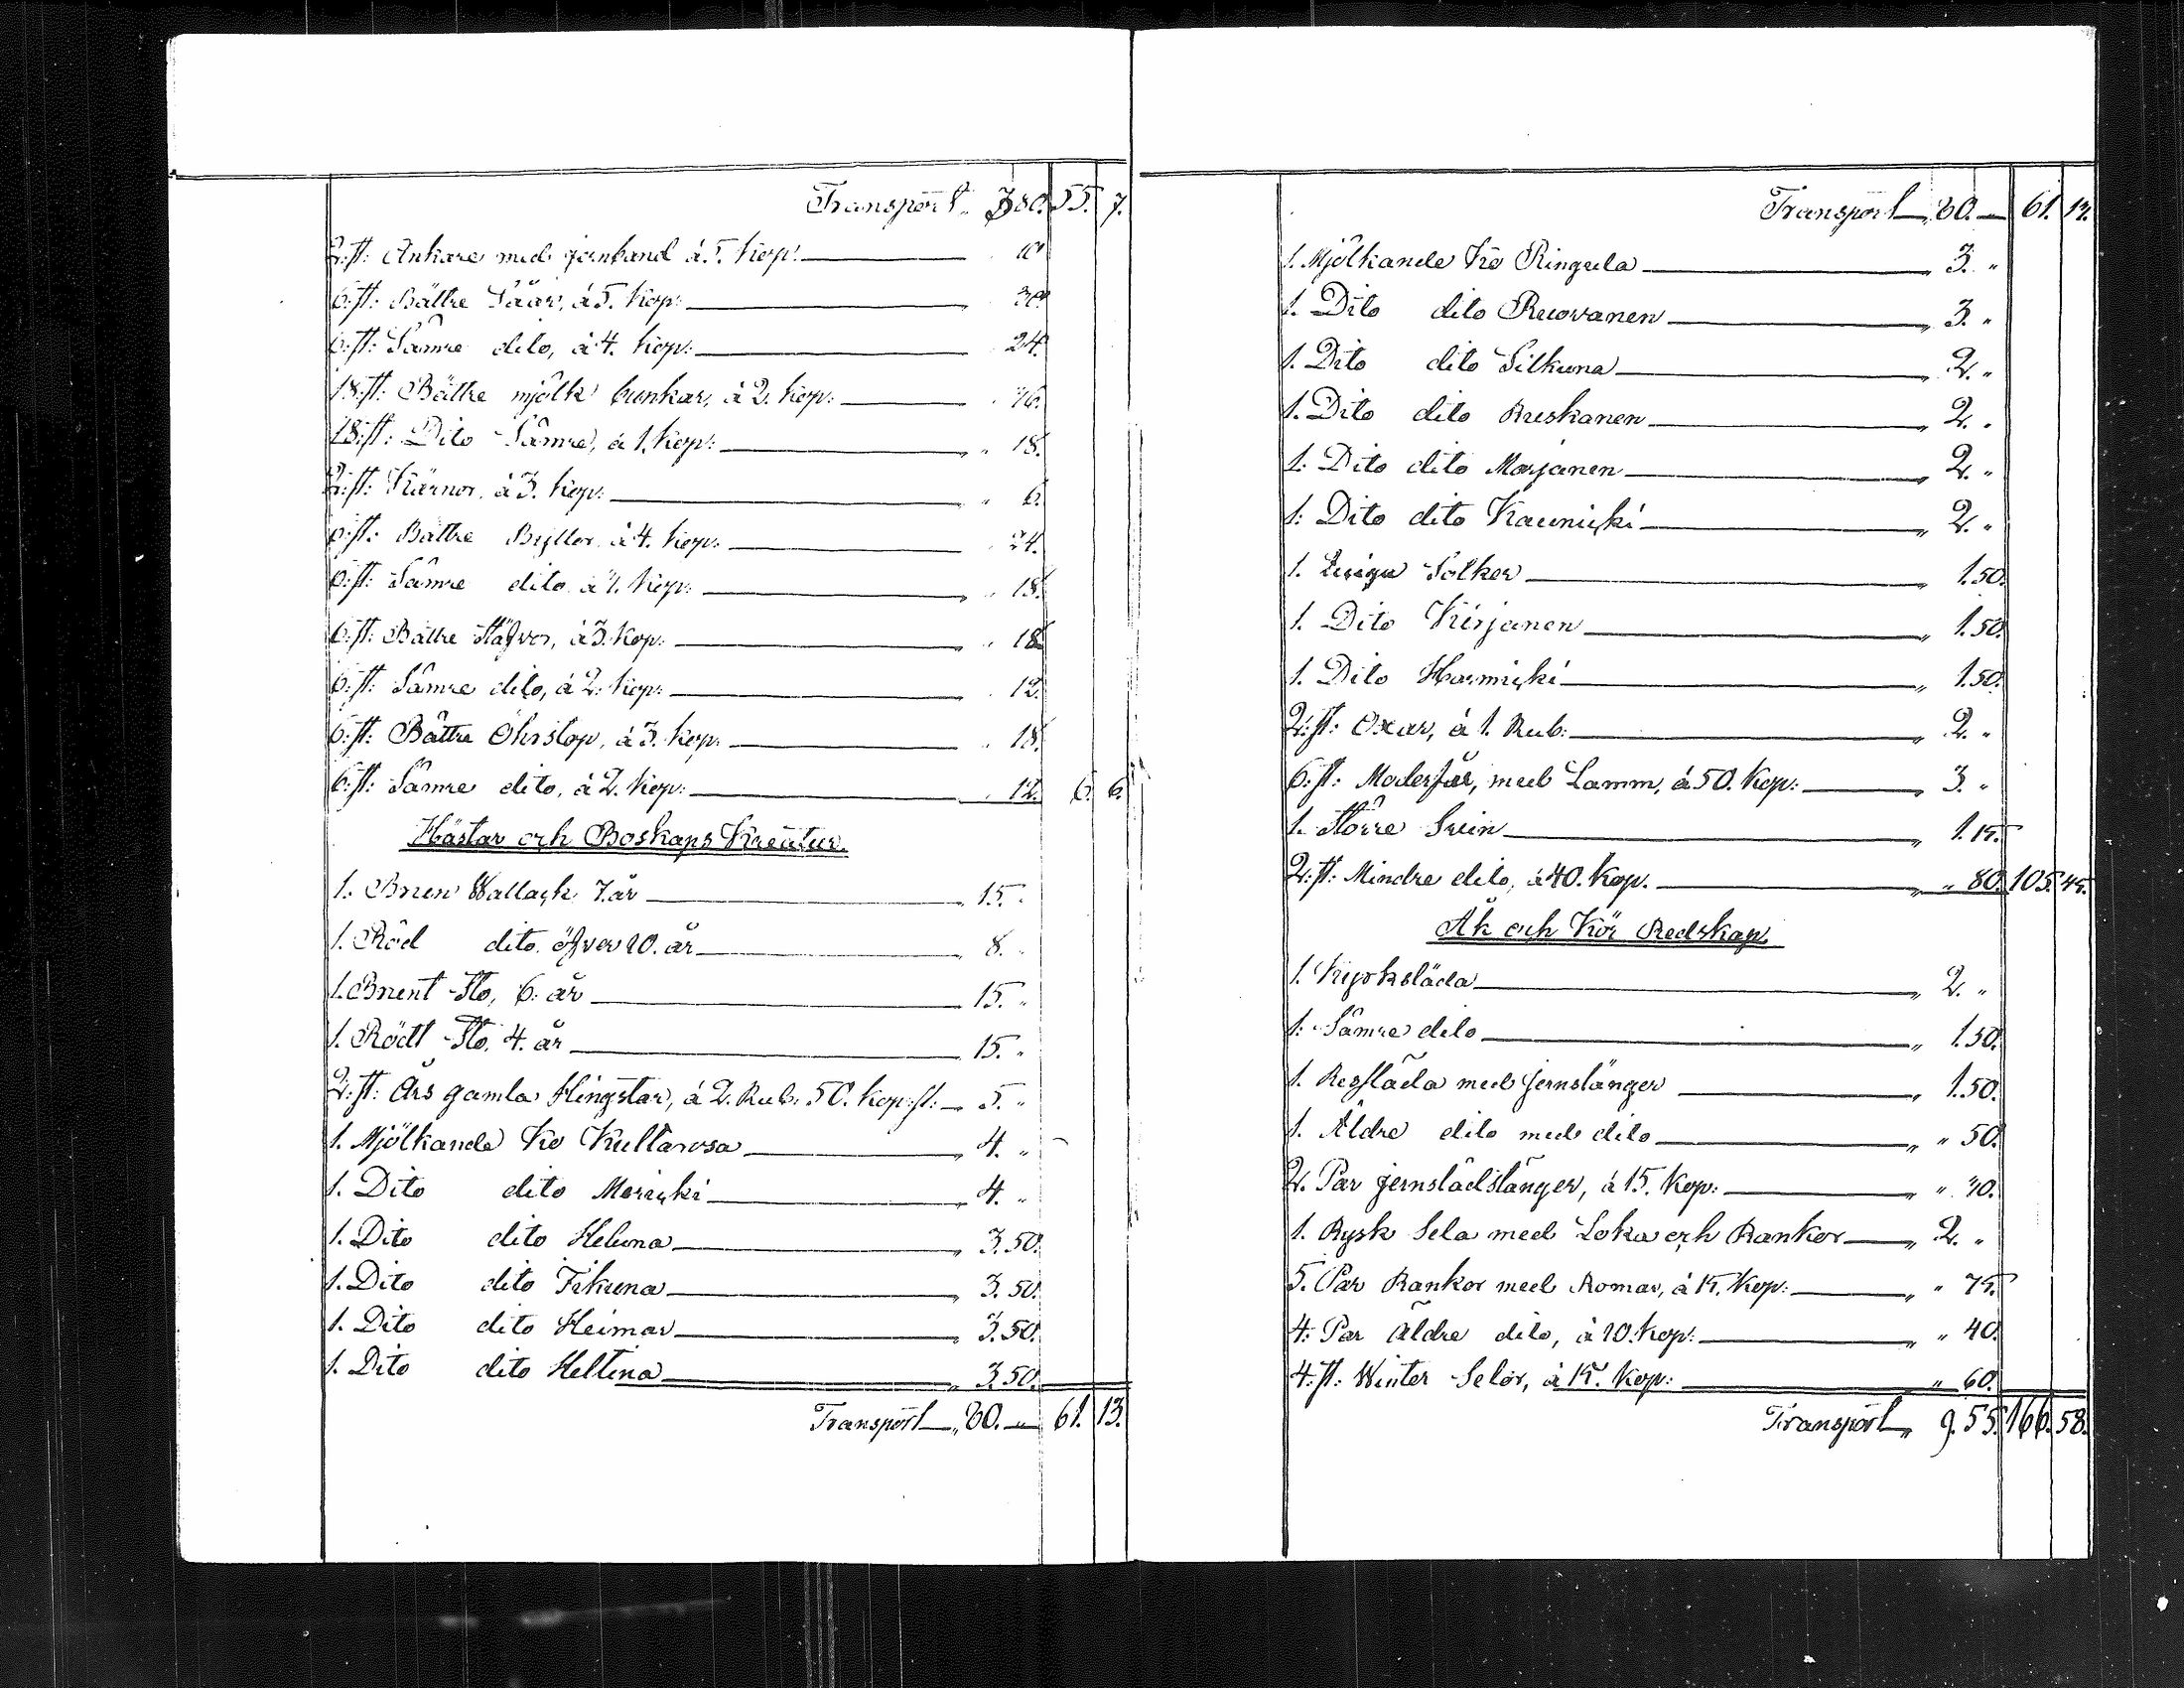 Transport „ 55. 7.
2:st: Ankare med jernband á 5. Kop: 10
6:st: Bättre Såår, á 5. Kop: 30
6:st: Sämre dito, á 4. Kop: 24.
18:st: Bättre mjölk bunkar, á 2. kop: 36.
18:st: Dito Sämre, á 1. Kop: 18.
2:st: Kärnor á 3. Kop: 6.
6:st: Bättre Byttor á 4. Kop: 24.
6:st: Sämre dito á 3. Kop: 18.
6:st: Bättre Stäfvor, á 3. Kop: 18
6:st: Sämre dito, á 2. Kop: 12.
6:st: Bättre Öhrstop, á 3. Kop. 18.
6:st: Sämre dito, á 2. Kop: 12. 6. 6.
Hästar och Boskaps Kreatur.
1. Brun Wallack 7. år 15. „
1. Röd dito öfver 10. år 8. „
1. Brunt Sto, 6. år 15. „
1. Rödt Sto. 4. år 15. „
2:st: Års gamla Hingstar, á 2. Rub. 50. kop:st: 5. „
1. Mjölkande Ko Kultarosa 4. „
1. Dito dito Mericki 4. „
1. Dito dito Heluna 3.50.
1. Dito dito 3.50.
1. Dito dito Heimar 3.50.
1. Dito dito Heltina 3.50.
Transport „ 80. — 61. 13.
Transport „ 80. — 61. 13.
1. Mjölkande Ko Ringula 3. „
1. Dito dito Ruovanen 3. „
1. Dito dito Silkuna 2. „
1. Dito dito Ruskanen 2. „
1. Dito dito Marjanen 2. „
1. Dito dito Kaunicki 2. „
1. Qviga Solker 1.50.
1. Dito Kirjanen 1.50.
1. Dito Harmicki 1.50.
2:st: Oxar, á 1. Rub. 2. „
6:st: Moderfår, med Lamm, á 50. Kop: 3. „
1. Större Svin 1.15.
2:st: Mindre dito, á 40. Kop. „ 80. 105. 45.
Åk och Kör Redskap.
1. Kyrksläda 2. „
1. Sämre dito 1.50.
1. Ressläda med jernstänger 1.50.
1. Äldre dito med dito „ 50.
2. Par jernslädstänger, á 15. Kop: „ 30.
1. Rysk Sela med Loka och Rankor 2. „
5. Par Rankor med Romar, á 15. Kop: „ 75.
4. Par Äldre dito, á 10. Kop: „ 40.
4:st: Winter Selor, á 15. Kop: „ 60.
Transport „ 9.55. 166. 58.